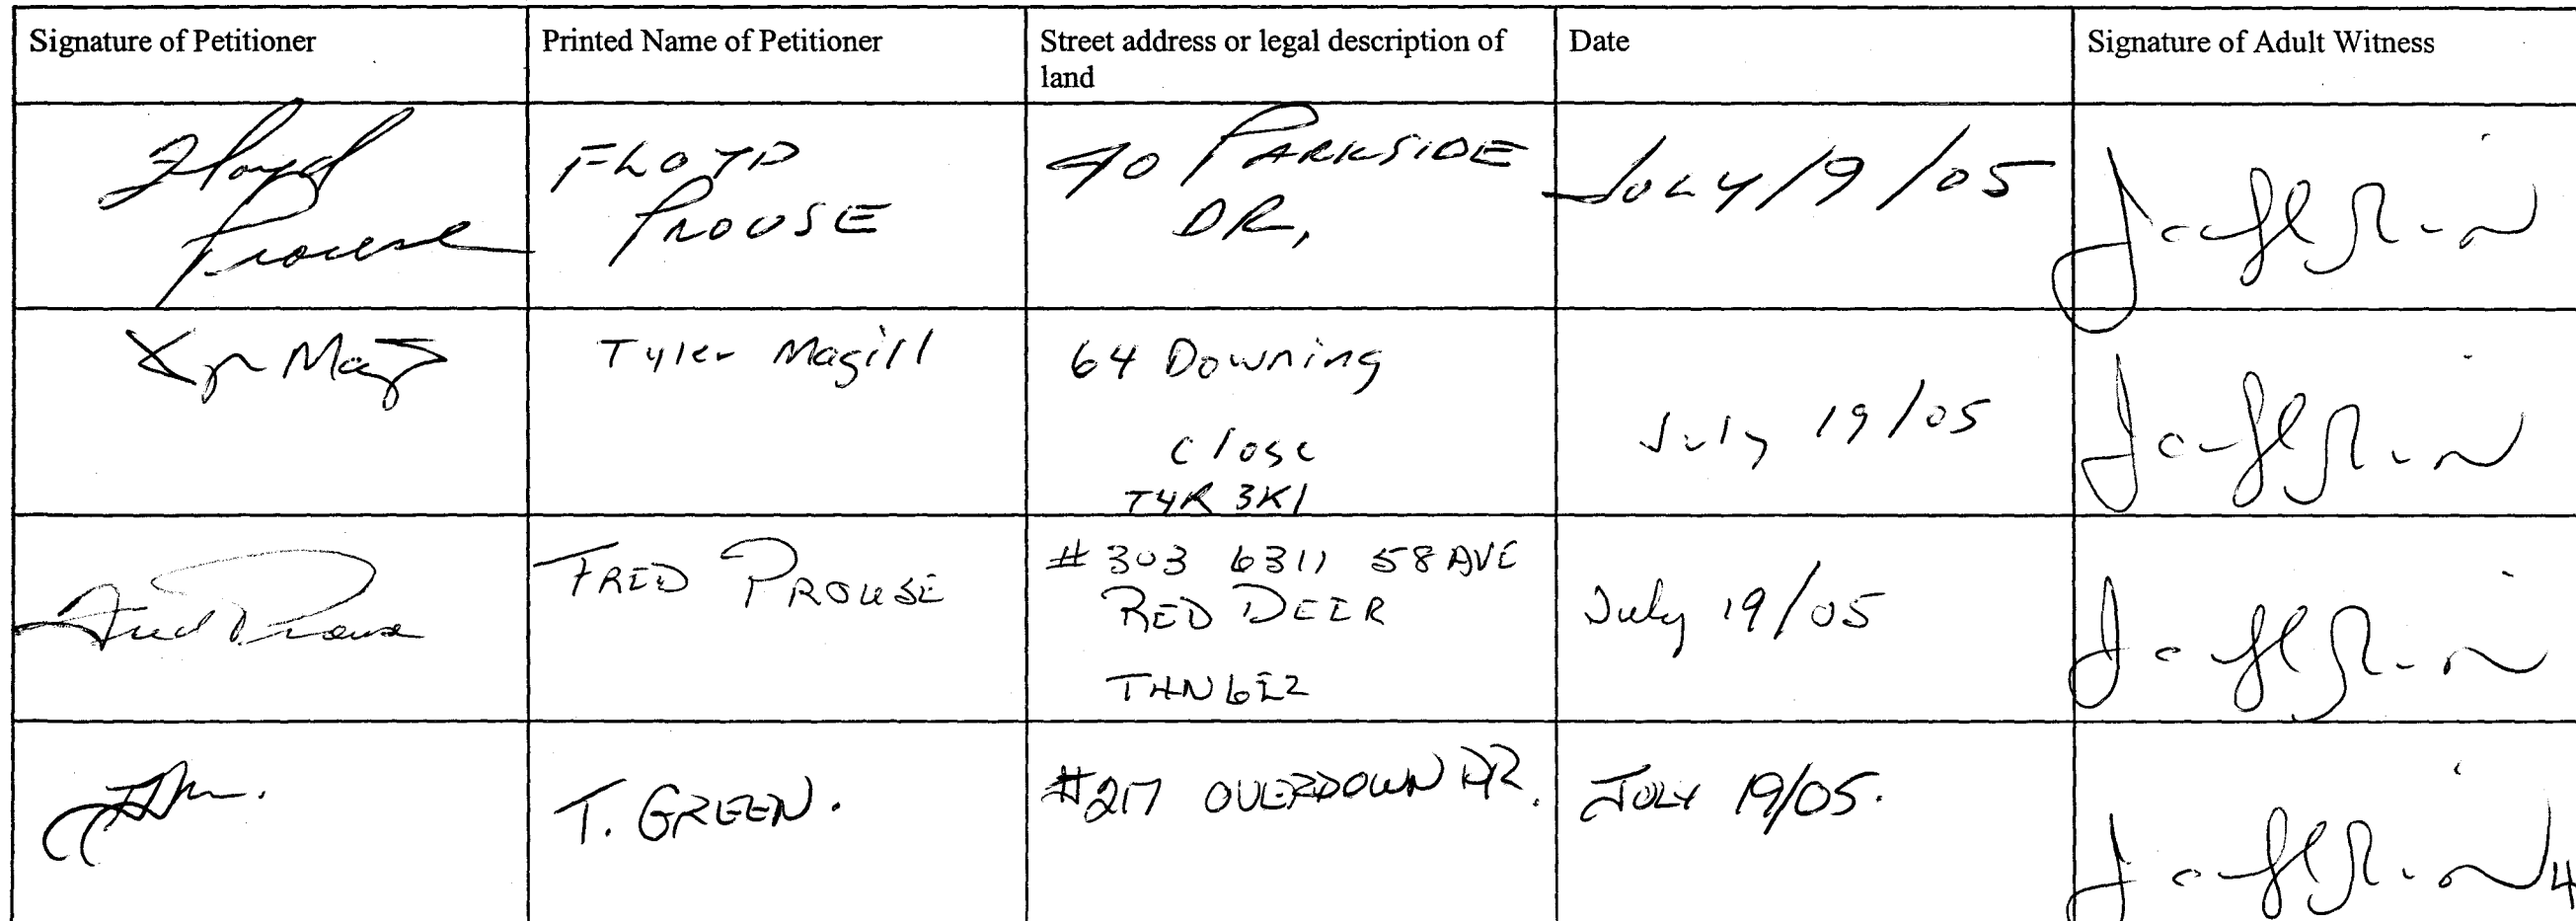 Signature of Petitioner
Printed Name of Petitioner
Street address or legal description of
land
Date
Signature of Adult Witness
Floyd
Prouse
FLOYD
PROUSE
40 PARKSIDE
DR,
JULY/19/05
Tyler Magill
64 Downing
Close
T4R 3K1
July 19/05
Fred Prouse
FRED PROUSE
# 303 6311 58 AVE
RED DEER
T4N 6E2
July 19/05
T. GREEN.
#217 OVERDOWN DR.
JULY 19/05.
4